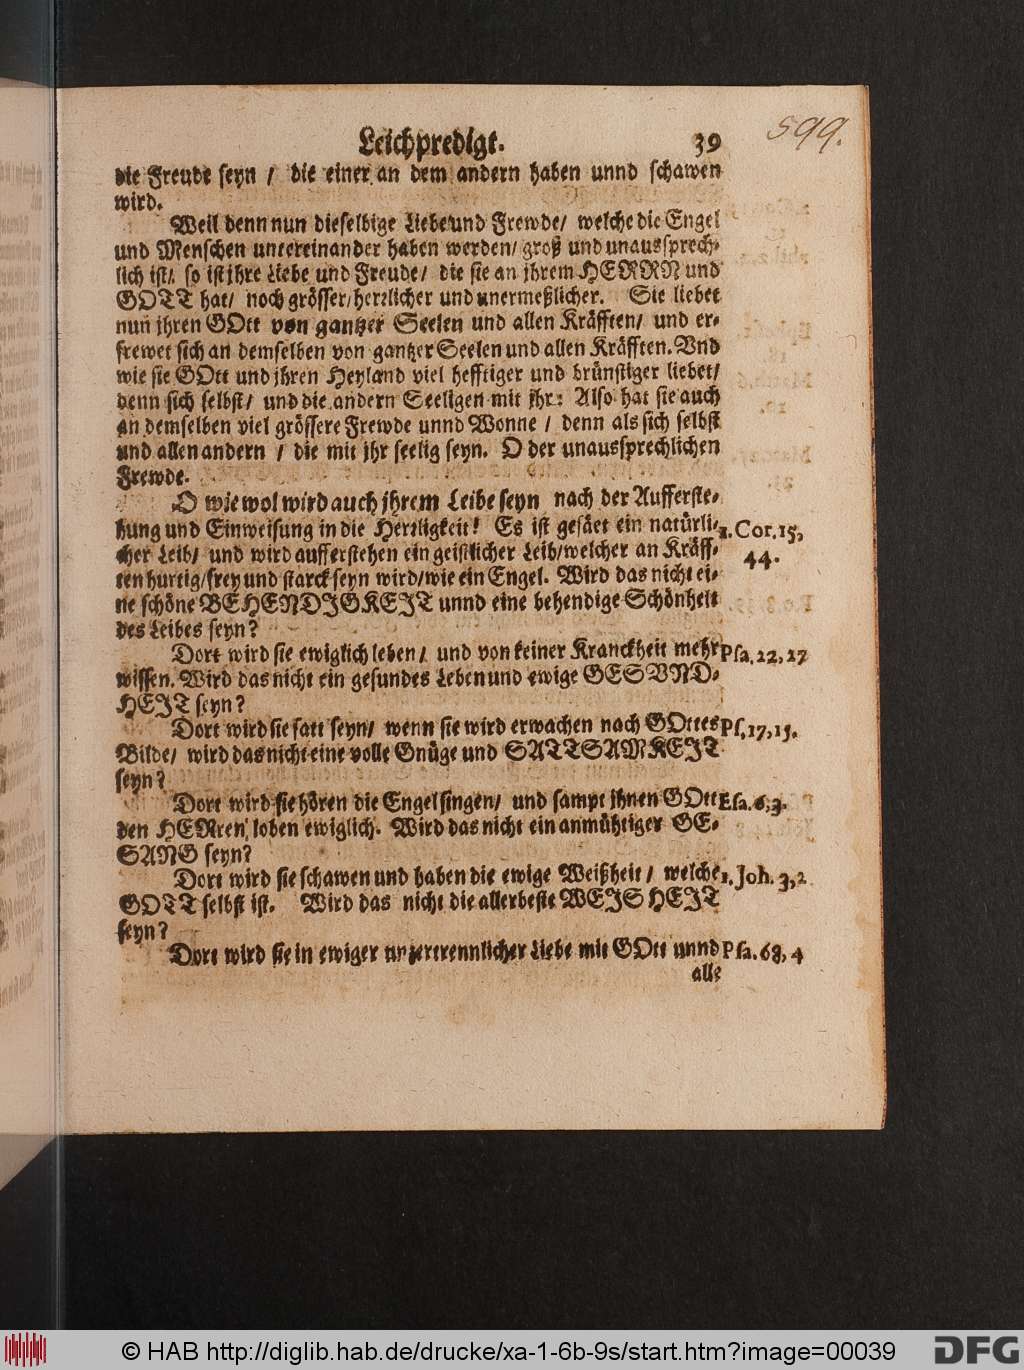 Leichpredigt. 39 599.
die Freude seyn / die einer an dem andern haben unnd schawen
wird.
Weil denn nun dieselbige Liebe und Frewde / welche die Engel
und Menschen untereinander haben werden / groß und unaussprech-
lich ist / so ist jhre Liebe und Freude / die sie an jhrem HERRN und
GOTT hat / noch grösser / herrlicher und unermeßlicher. Sie liebet
nun jhren GOtt von gantzer Seelen und allen Kräfften / und er-
frewet sich an demselben von gantzer Seelen und allen Kräfften. Vnd
wie sie GOtt und jhren Heyland viel hefftiger und brünstiger liebet /
denn sich selbst / und die andern Seeligen mit jhr: Also hat sie auch
an demselben viel grössere Frewde unnd Wonne / denn als sich selbst
und allen andern / die mit jhr seelig seyn. O der unaussprechlichen
Frewde.
O wie wol wird auch jhrem Leibe seyn nach der Aufferste-
hung und Einweisung in die Herrligkeit! Es ist gesäet ein natürli- 1. Cor. 15,
cher Leib / und wird aufferstehen ein geistlicher Leib / welcher an Kräff- 44.
ten hurtig / frey und starck seyn wird / wie ein Engel. Wird das nicht ei-
ne schöne BEHENDIGKEIT unnd eine behendige Schönheit
des Leibes seyn?
Dort wird sie ewiglich leben / und von keiner Kranckheit mehr Psa. 22, 27
wissen. Wird das nicht ein gesundes Leben und ewige GESVND-
HEIT seyn?
Dort wird sie satt seyn / wenn sie wird erwachen nach GOttes Ps. 17, 15.
Bilde / wird das nicht eine volle Gnüge und SATTSAMKEIT
seyn?
Dort wird sie hören die Engel singen / und sampt jhnen GOtt Esa. 6, 3.
den HERren loben ewiglich. Wird das nicht ein anmühtiger GE-
SANG seyn?
Dort wird sie schawen und haben die ewige Weißheit / welche 1. Joh. 3, 2
GOTT selbst ist. Wird das nicht die allerbeste WEISHEIT
seyn?
Dort wird sie in ewiger unzertrennlicher Liebe mit GOtt unnd Psa. 68, 4
alle
© HAB http://diglib.hab.de/drucke/xa-1-6b-9s/start.htm?image=00039
DFG